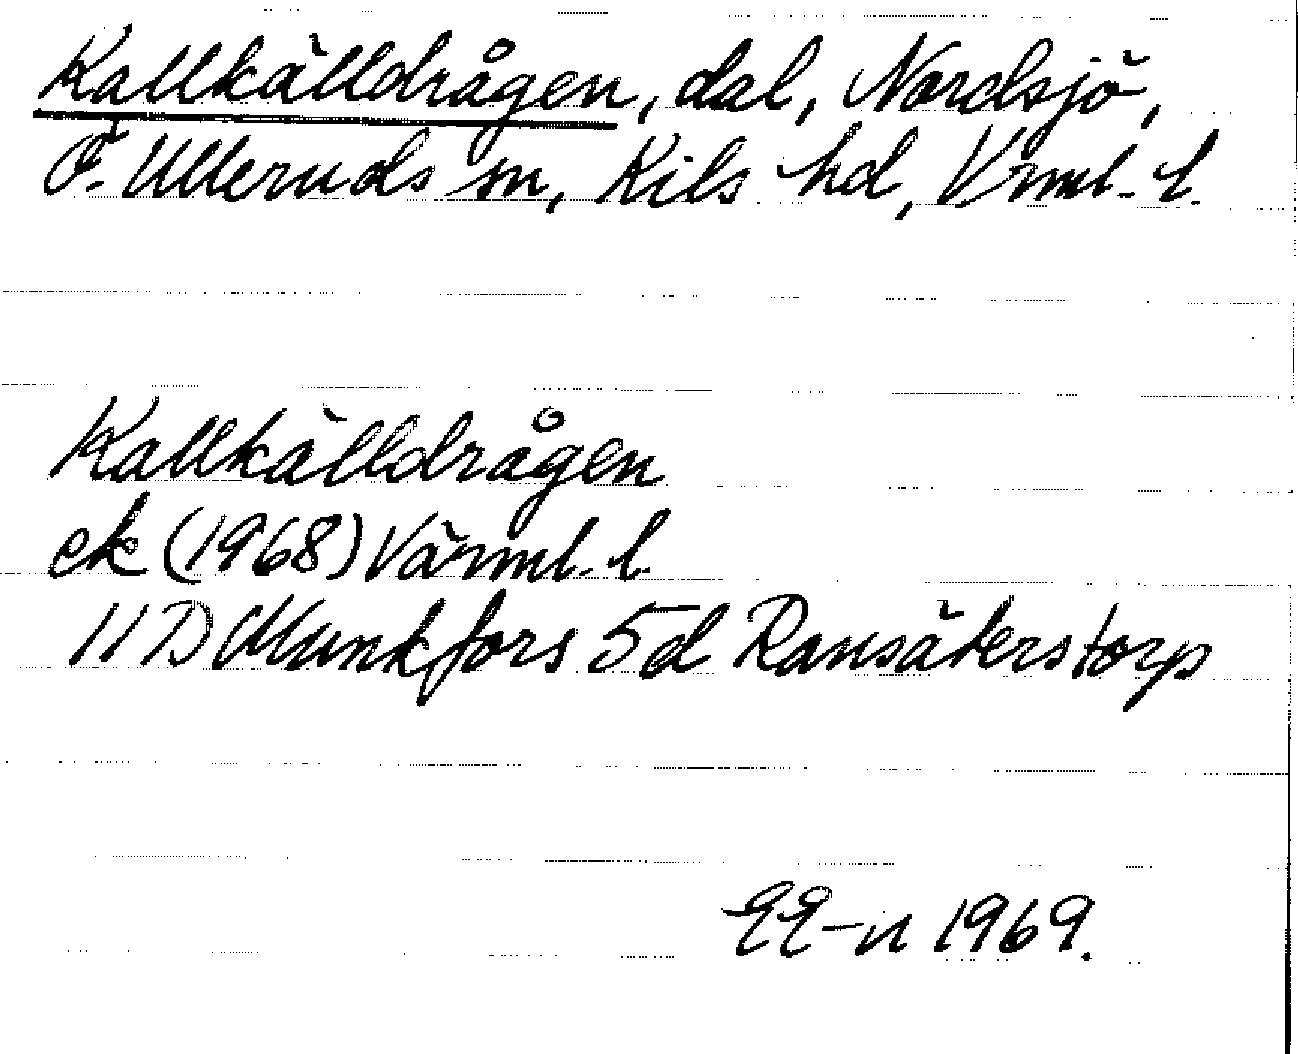 Kallkälldrågen, dal, Nordsjö,
Ö. Ulleruds sn, Kils hd, Vrml. l.
Kallkälldrågen
ek (1968) Värml. l.
11 D Munkfors 5d Ransäterstorp
EE-n 1969.